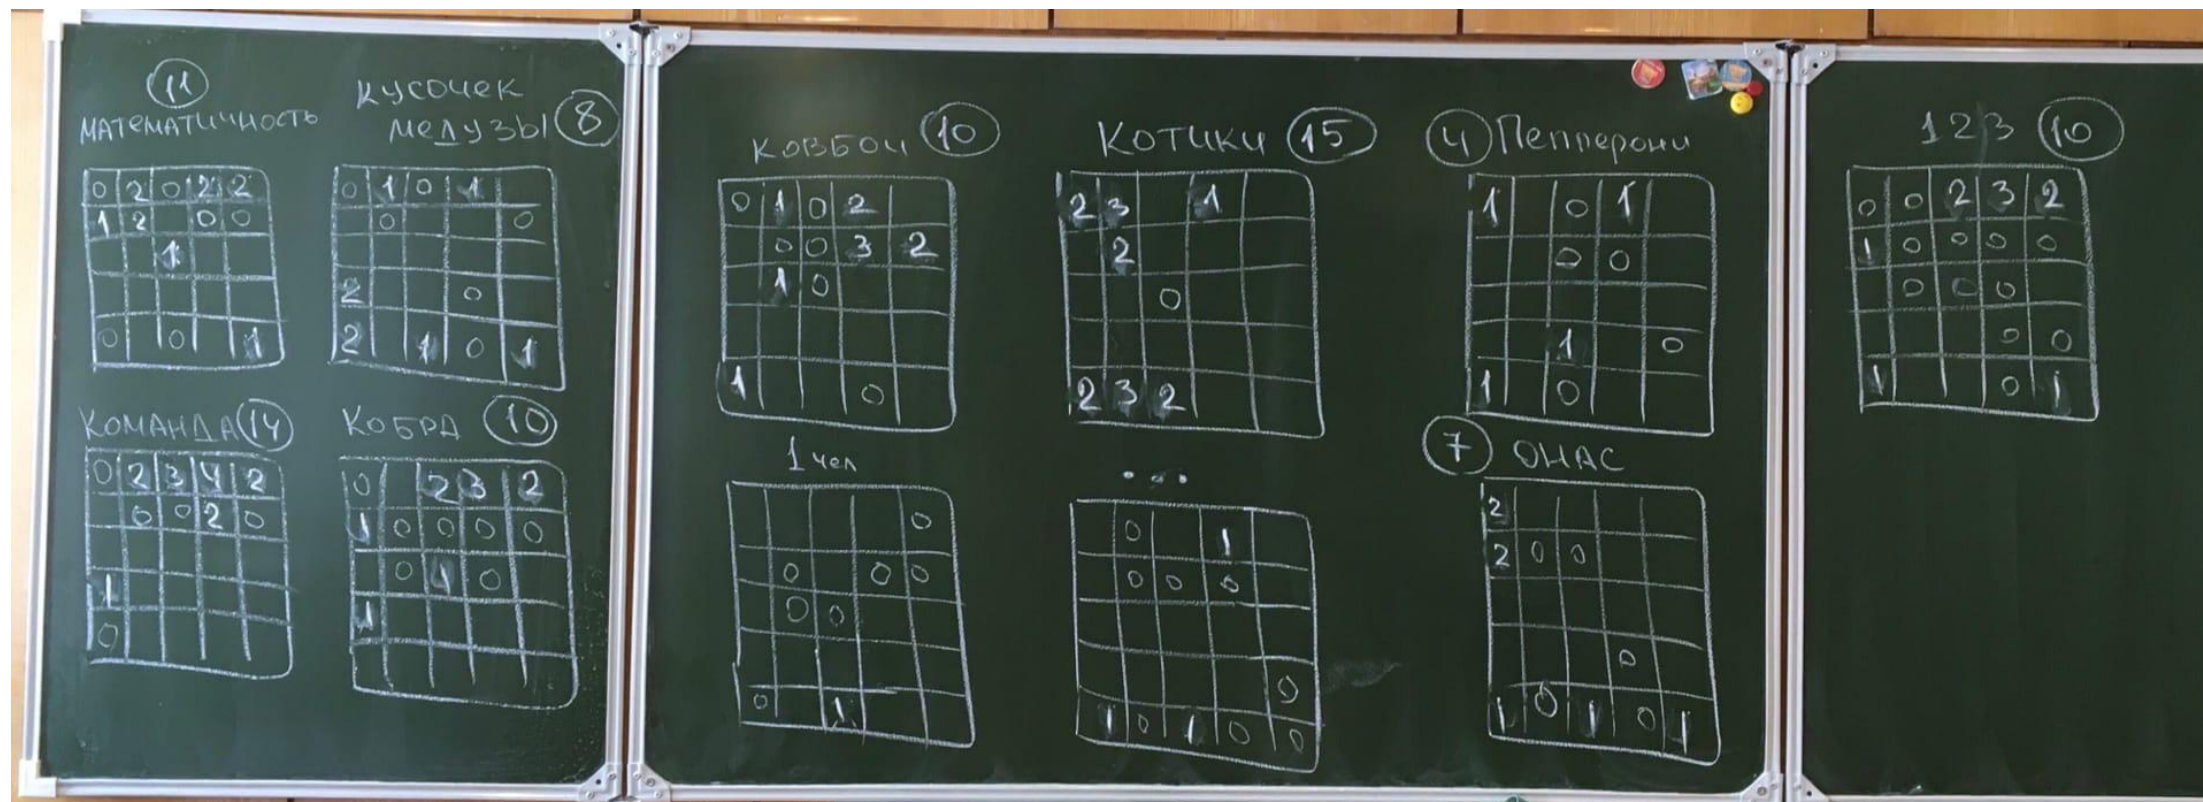 11
МАТЕМАТИЧНОСТЬ
0 2 0 2 2
1 2 0 0
1
0 0 1
КУСОЧЕК
МЕДУЗЫ 8
0 1 0 1
0 0
2 0
2 1 0 1
КОМАНДА 14
0 2 3 4 2
0 0 2 0
1
0
КОБРА 10
0 2 3 2
1 0 0 0 0
0 1 0
1
КОВБОИ 10
0 1 0 2
0 0 3 2
1 0
1 0
КОТИКИ 15
2 3 1
2
0
2 3 2
4 Пепперони
1 0 1
0 0
1 0
1 0
1 чел
0
0 0 0
0 0
0 1
...
0 1
0 0 0
0
1 0 1 0 0
7 ОНАС
2
2 0 0
0
1 0 1 0 1
123 10
0 0 2 3 2
1 0 0 0 0
0 0 0
0 0
1 0 1